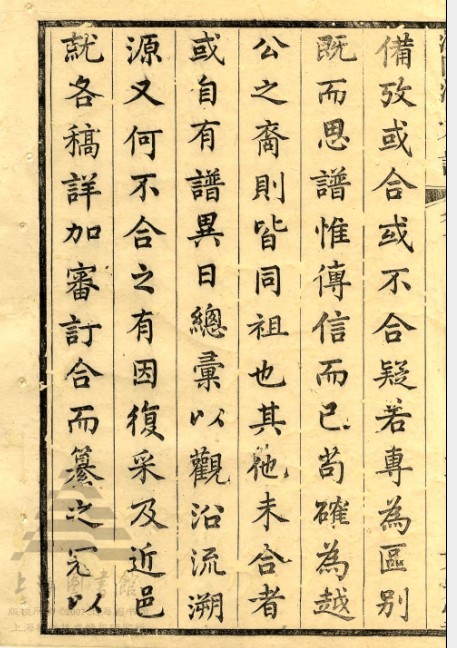 備攷或合或不合疑若專為區別
既而思譜惟傳信而已苟確為越
公之裔則皆同祖也其他未合者
或自有譜異日總彙以觀沿流溯
源又何不合之有因復采及近邑
就各稿詳加審訂合而纂之冕以
上海圖書館